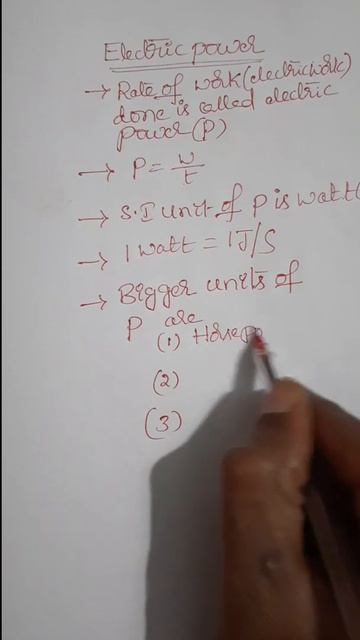 Electric power
→ Rate of work (electric work)
done is called electric
power (P)
→ P = w/t
→ S.I unit of P is watt(
→ 1 watt = 1J/S
→ Bigger units of
P are
(1) Horsep
(2)
(3)